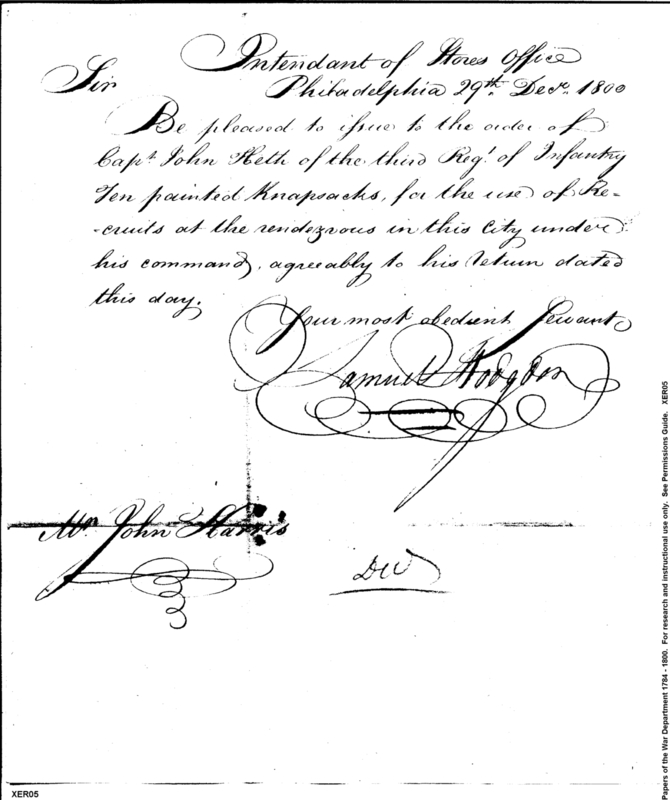 Intendant of Stores Office
Sir
Philadelphia 29th Decr. 1800
Be pleased to issue to the order of
Capt. John Heth of the third Regt. of Infantry
Ten painted Knapsacks, for the use of Re-
-cruits at the rendezvous in this City under
his command, agreeably to his return dated
this day.
Your most obedient Servant
Samuel Hodgdon
Mr. John Harris
XER05
Papers of the War Department 1784 - 1800. For research and instructional use only. See Permissions Guide. XER05